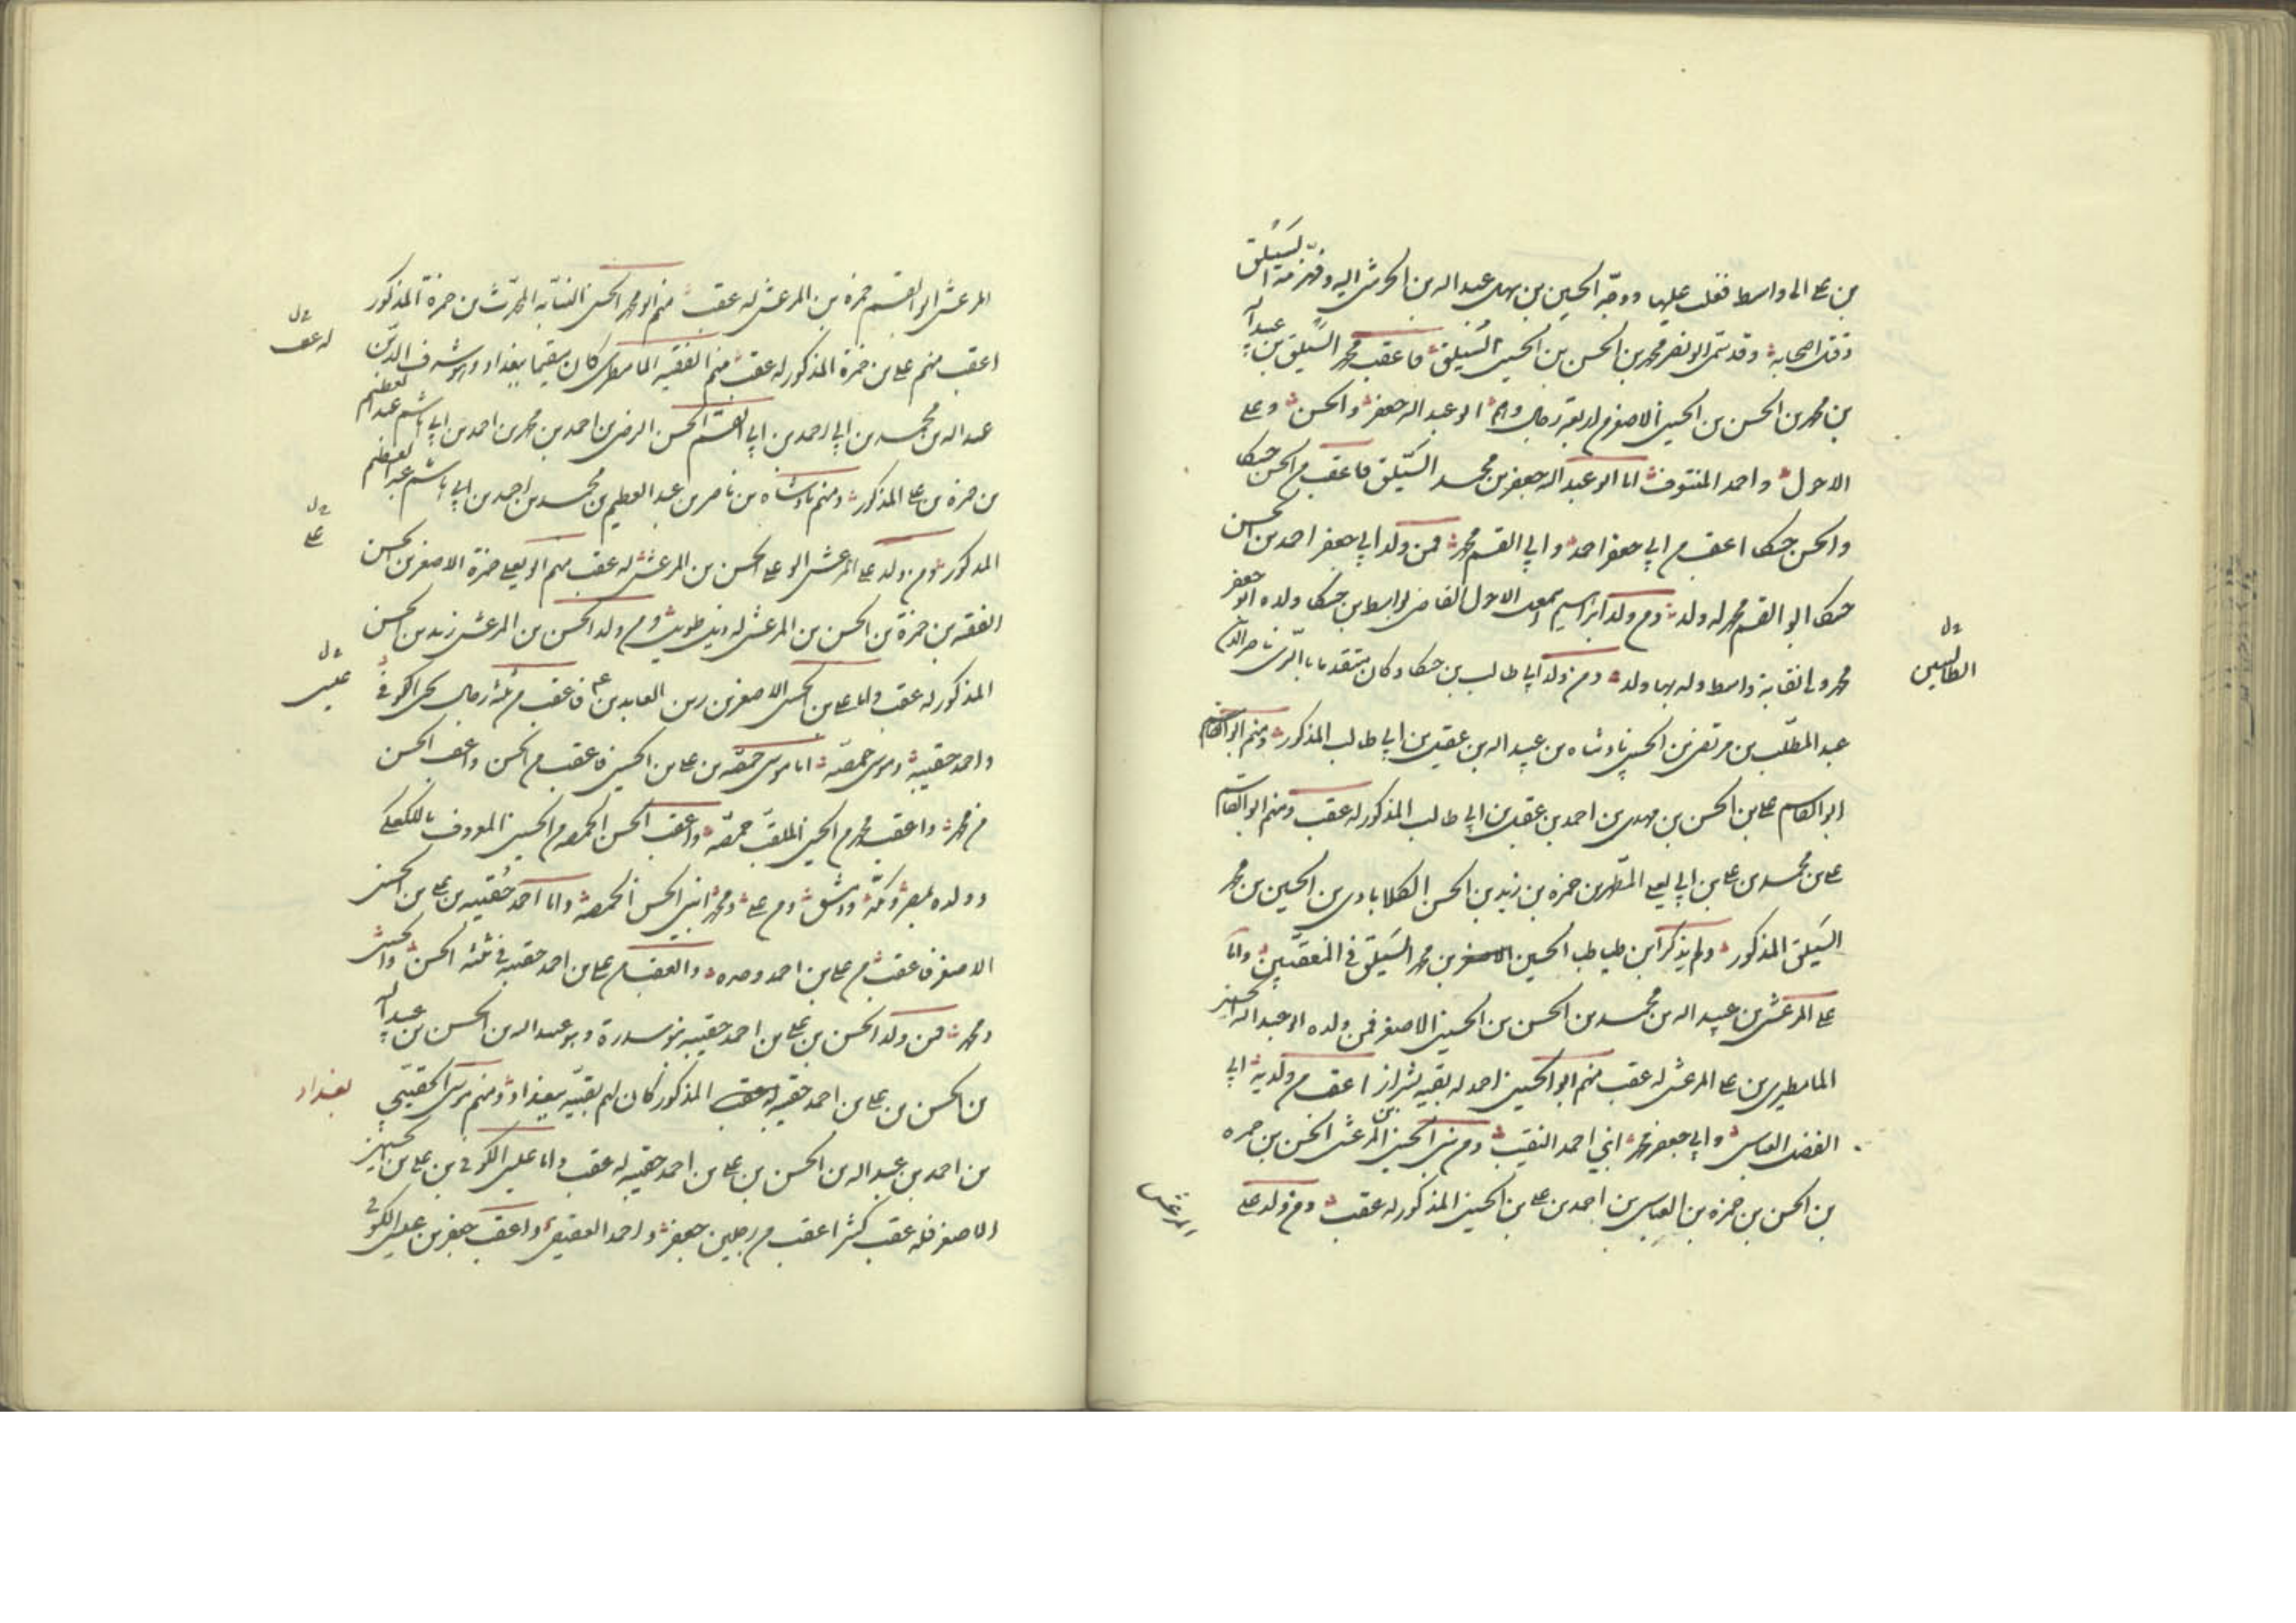 بن علي الى واسط فغلب عليها ووجّه الحسين بن سهل عبد الله بن الحرشي اليه وفهزمه السَيْلق
وقتل اصحابه وقد سمى ابو نصر محمد بن الحسن بن الحسين السَيلق فاعقب محمد السَيلق بن عبيد الله
بن محمد بن الحسن بن الحسين الاصغر من اربعة رجال وهم ابو عبد الله جعفر والحسن وعلي
الاحول واحمد المنتوف اما ابو عبد الله جعفر بن محمد السَيلق فاعقب من الحسن حسكا
والحسن حسكا اعقب من ابي جعفر احمد وابي القسم محمد فمن ولد ابي جعفر احمد بن الحسن
حسكا ابو القسم محمد له ولد ومن ولد ابراهيم الاحول القاضي بواسط بن حسكا ولده ابو جعفر
محمد ولي نقابة واسط وله بها ولد ومن ولد ابي طالب بن حسكا وكان متقدما بالري ناصر الدين
عبد المطلب بن مرتضى بن الحسين پادشاه بن عبيد الله بن عقيل بن ابي طالب المذكور ومنهم ابو القاسم
ابو القاسم علي بن الحسن بن مهدي بن احمد بن عقيل بن ابي طالب المذكور له عقب ومنهم ابو القاسم
علي بن محمد بن علي بن ابي يعلي المطهر بن حمزه بن زيد بن الحسن الكلابادي بن الحسين بن محمد
السَيلق المذكور ولم يذكر ابن طباطبا الحسين بن محمد السَيلق في المعقبين واما
علي المرعشي بن عبيد الله بن محمد بن الحسن بن الحسين الاصغر فمن ولده ابو عبد الله الحسين
المامطيري بن علي المرعشي له عقب منهم ابو الحسين احمد له بقيه بشيراز اعقب من ولديه ابي
الفضل العباس وابي جعفر محمد ابني احمد النقيب ومن بني الحسين بن المرعشي الحسن بن حمزه
بن الحسن بن حمزه بن العباس بن احمد بن علي بن الحسين المذكور له عقب ومن ولد علي
المرعشي
الطالبيين
المرعشي ابو القسم حمزه بن المرعشي له عقب منهم ابو محمد الحسن النسّابه المحدّث بن حمزة المذكور
اعقب منهم علي بن حمزة المذكور له عقب منهم الفقيه المامطيري كان مقيما ببغداد وهو شرف الدين
عبد الله بن محمد بن ابي احمد بن ابي القسم الحسن الرضي بن احمد بن محمد بن احمد بن ابي هاشم عبد العظيم
بن حمزة بن علي المذكور ومنهم پادشاه بن ناصر بن عبد العظيم بن محمد بن احمد بن ابي هاشم عبد العظيم
المذكور ومن ولد علي المرعشي ابو علي الحسن بن المرعشي له عقب منهم ابو يعلي حمزة الاصغر بن الحسن
الفقيه بن حمزة بن الحسن بن المرعشي له ذيل طويل ومن ولد الحسن بن المرعشي زيد بن الحسن
المذكور له عقب واما علي بن الحسين الاصغر بن زين العابدين ع فاعقب من ثلثة رجال عيسى الكوفي
واحمد حقينه وموسى حمصه اما موسى حمصه بن علي بن الحسين فاعقب من الحسن واعقب الحسن
من محمد واعقب محمد من الحسين الملقب حمصه واعقب الحسن الحمصه من الحسين المعروف بالكعكي
وولده بمصر ومكّة ودمشق ومن علي ومحمد ابني الحسن الحمصه واما احمد حقينه بن علي بن الحسين
الاصغر فاعقب من علي بن احمد وحده والعقب من علي بن احمد حقينه في ثلثه الحسن والحسين
ومحمد فمن ولد الحسن بن علي بن احمد حقينه بنو سدرة وهو عبد الله بن الحسن بن عبيد الله
بن الحسن بن علي بن احمد حقينه المذكور كان لهم بقيّه ببغداد ومنهم موسى الحقيني
بن احمد بن عبد الله بن الحسن بن علي بن احمد حقينه له عقب واما عيسى الكوفي بن علي بن الحسين
الاصغر فله عقب كثير اعقب من رجلين جعفر واحمد العقيقي واعقب جعفر بن عيسى الكوفي
له عقب
علي
عيسى
بغداد